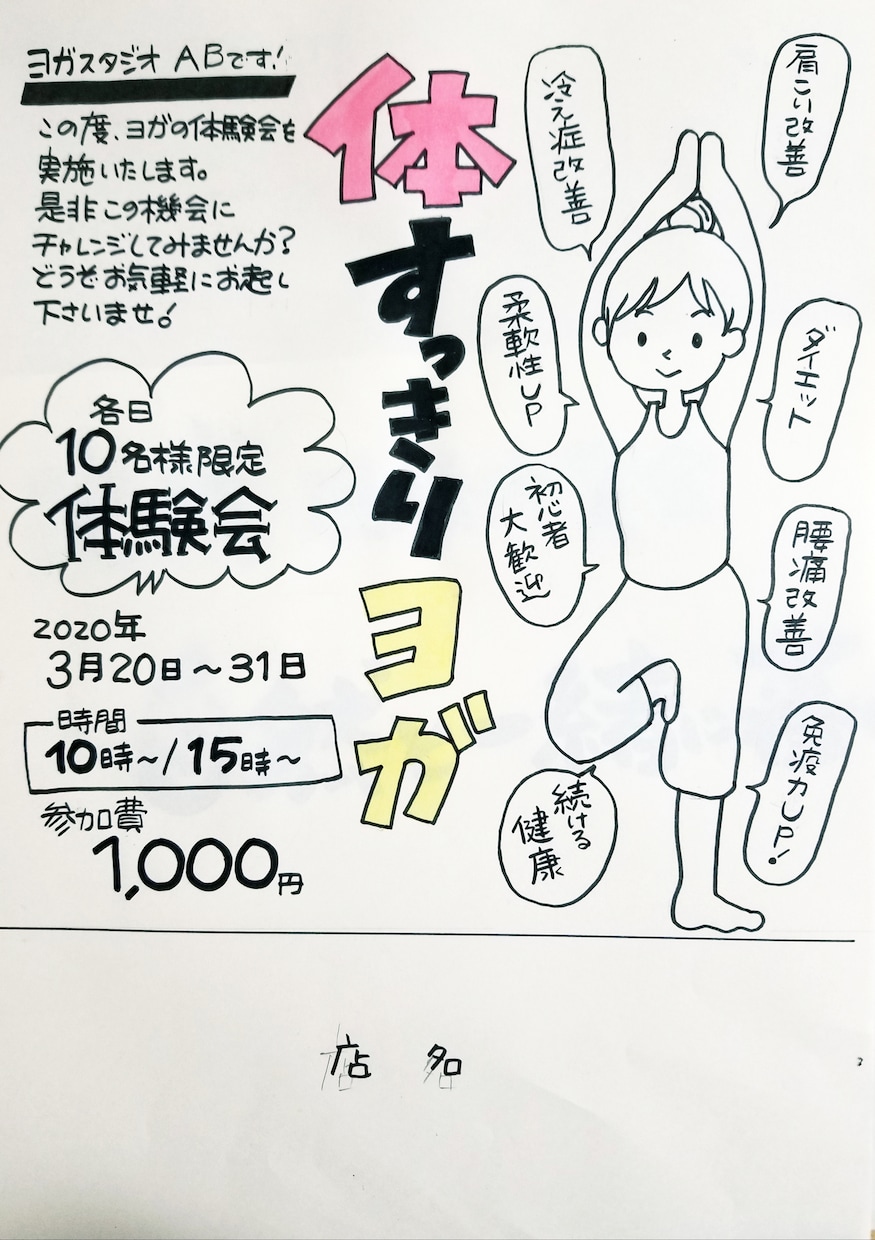 ヨガスタジオ ABです!
この度、ヨガの体験会を
実施いたします。
是非この機会に
チャレンジしてみませんか?
どうぞお気軽にお起し
下さいませ!
体すっきりヨガ
各日
10名様限定
体験会
2020年
3月20日～31日
時間
10時～/15時～
参加費
1,000円
冷え症改善
肩こり改善
柔軟性UP
ダイエット
初心者
大歓迎
腰痛改善
免疫力UP!
続ける
健康
店 名